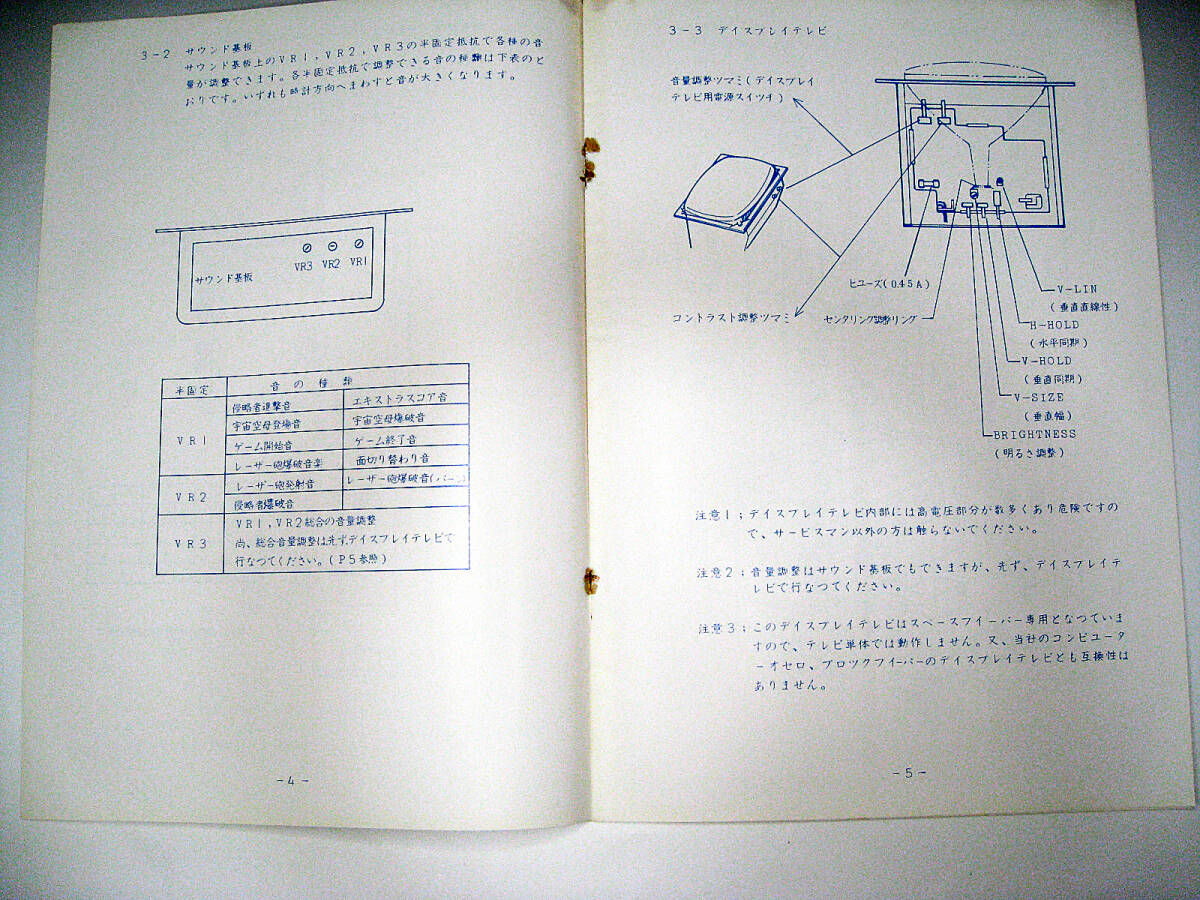 3-2 サウンド基板
サウンド基板上のVR1,VR2,VR3の半固定抵抗で各種の音
量が調整できます。各半固定抵抗で調整できる音の種類は下表のと
おりです。いずれも時計方向へまわすと音が大きくなります。
VR3 VR2 VR1
サウンド基板
半固定 音の種類
VR1
侵略者進撃音 エキストラスコア音
宇宙空母登場音 宇宙空母爆破音
ゲーム開始音 ゲーム終了音
レーザー砲爆破音楽 面切り替わり音
VR2
レーザー砲発射音 レーザー砲爆破音(バーン)
侵略者爆破音
VR3
VR1,VR2総合の音量調整
尚、総合音量調整は先ずデイスプレイテレビで
行なつてください。(P5参照)
-4-
3-3 デイスプレイテレビ
音量調整ツマミ(デイスプレイ
テレビ用電源スイツチ)
ヒユーズ(0.45A)
コントラスト調整ツマミ
センタリング調整リング
V-LIN
(垂直直線性)
H-HOLD
(水平同期)
V-HOLD
(垂直同期)
V-SIZE
(垂直幅)
BRIGHTNESS
(明るさ調整)
注意1;デイスプレイテレビ内部には高電圧部分が数多くあり危険ですの
で、サービスマン以外の方は触らないでください。
注意2;音量調整はサウンド基板でもできますが、先ず、デイスプレイテ
レビで行なつてください。
注意3;このデイスプレイテレビはスペースフイーバー専用となつていま
すので、テレビ単体では動作しません。又、当社のコンピユータ
ーオセロ、ブロツクフイーバーのデイスプレイテレビとも互換性は
ありません。
-5-